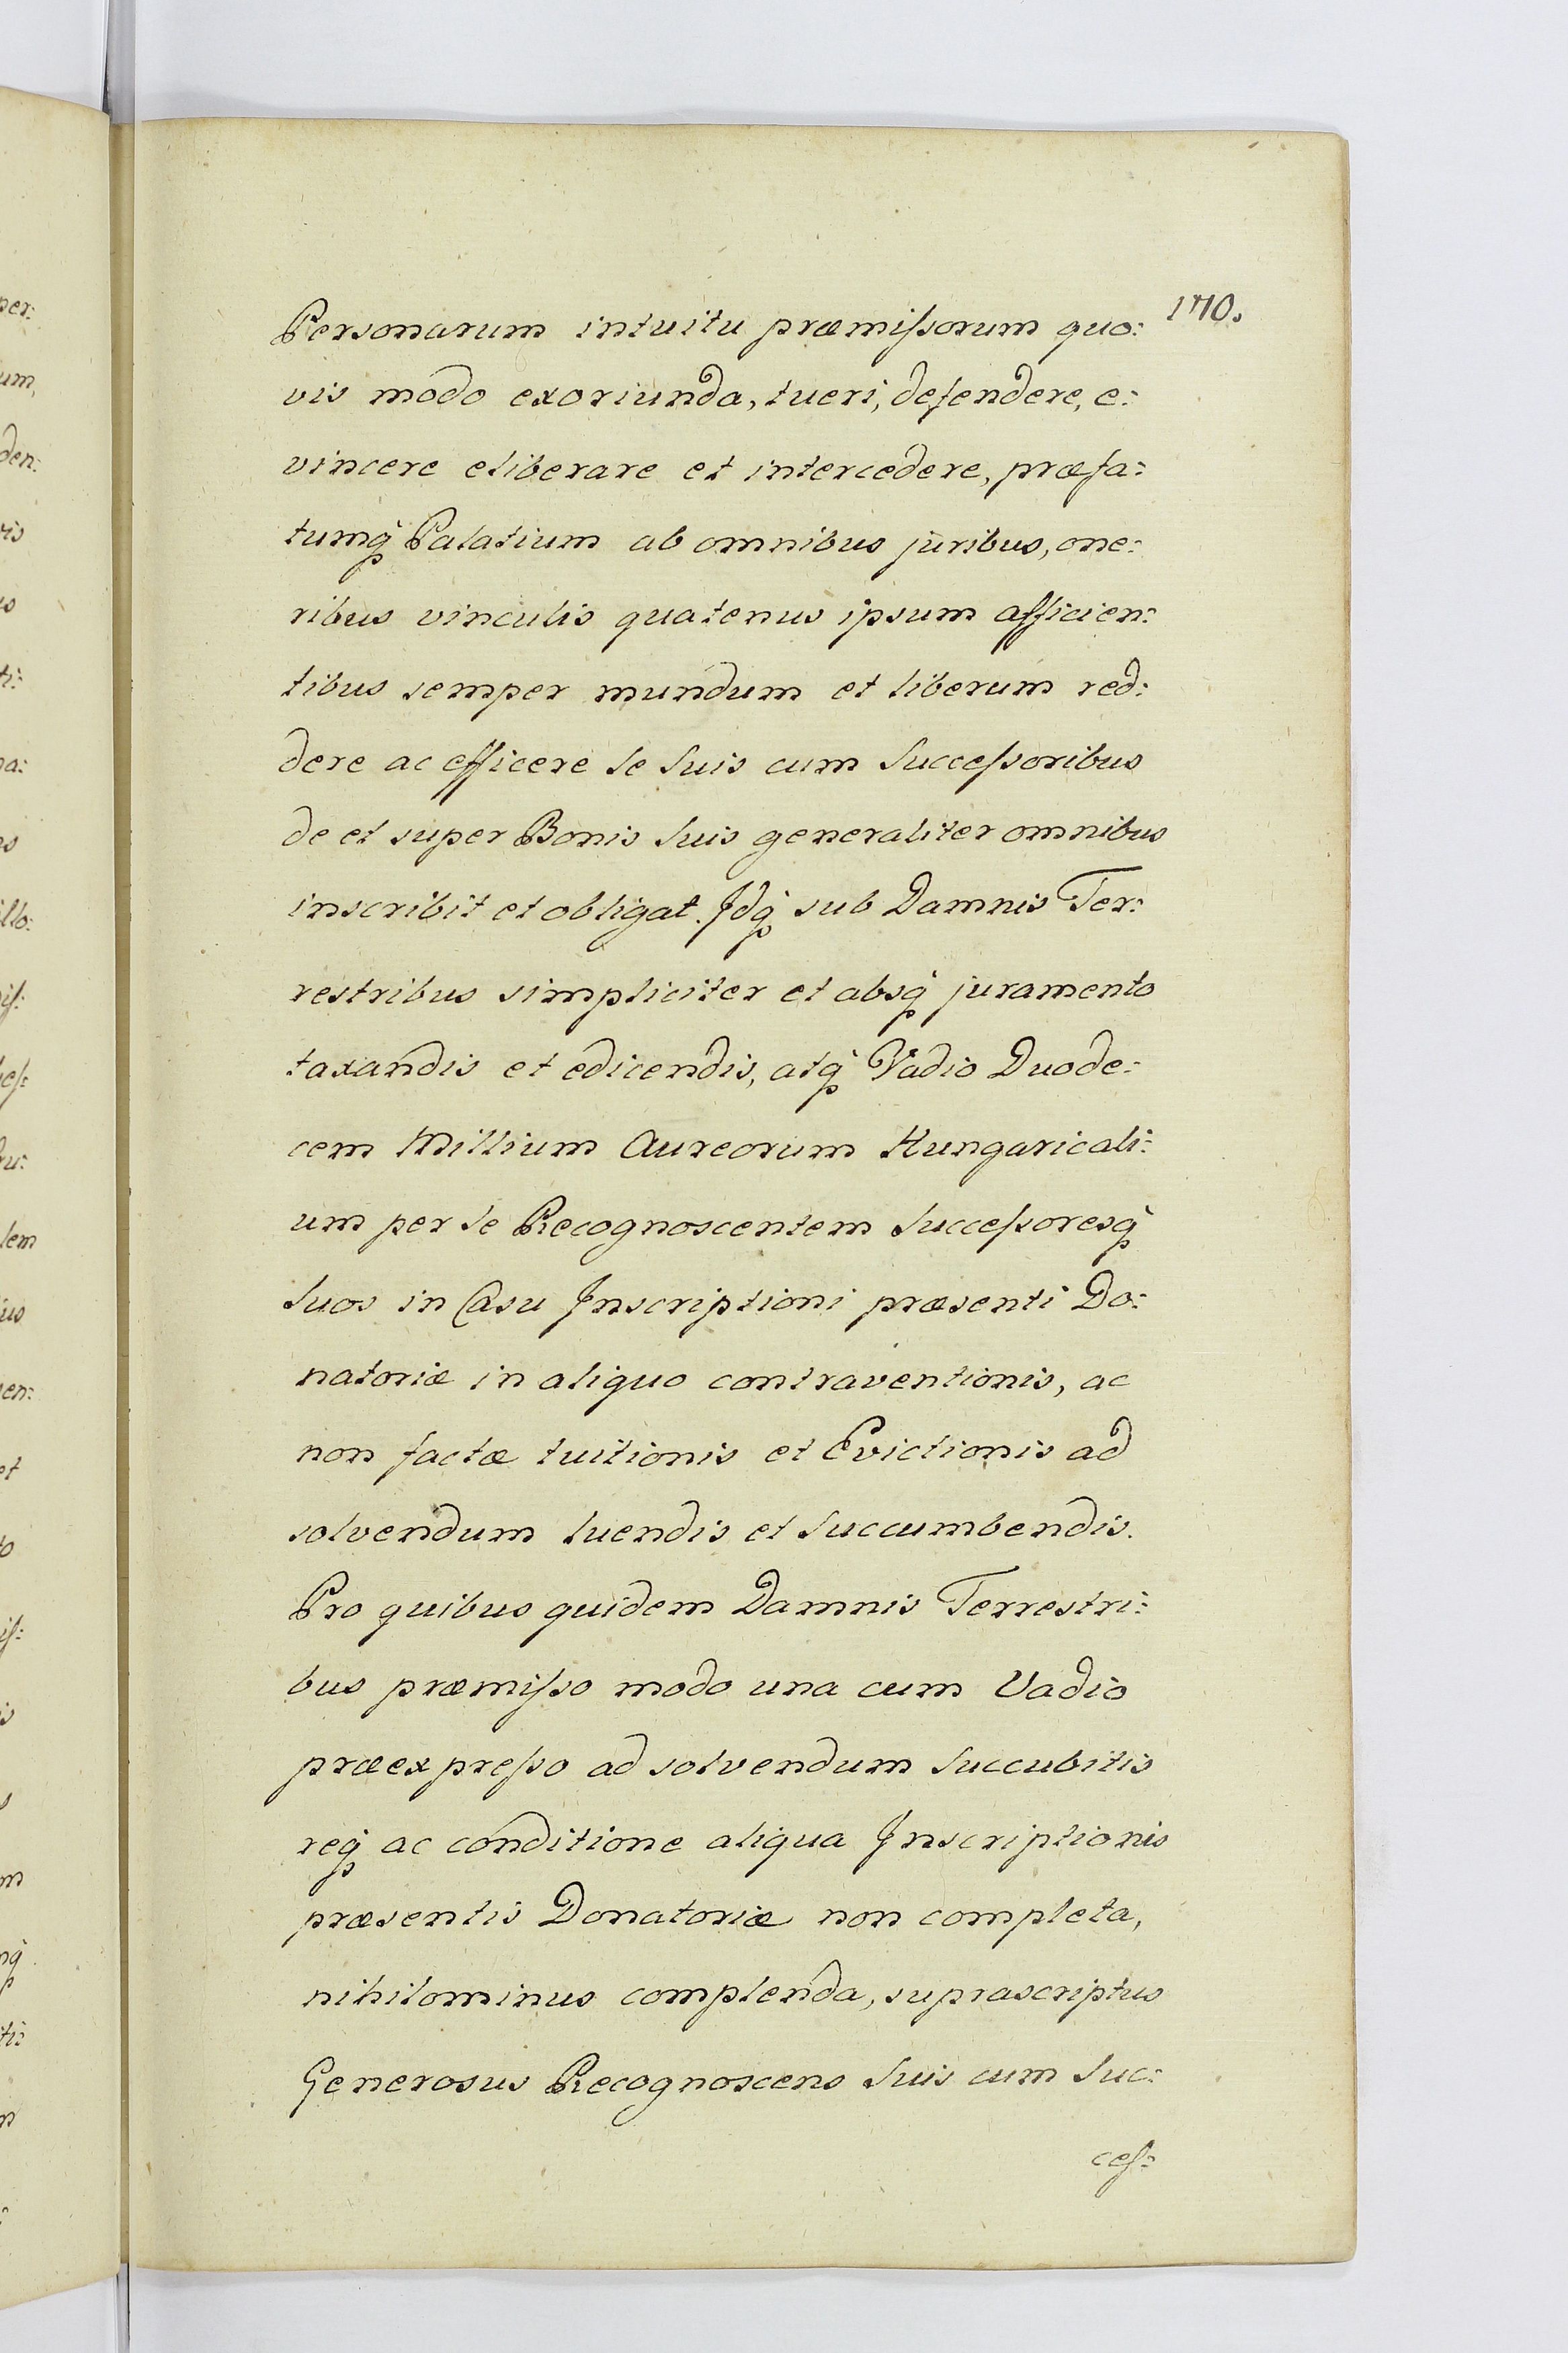 170.
Personarum intuitu præmiſsorum quo:
vis modo exoriunda, tueri, defendere, e:
vincere eliberare et intercedere, præfa:
tumq́ Palatium ab omnibus juribus, one:
ribus vinculis quatenus ipsum afficien:
tibus semper mundum et liberum red:
dere ac efficere Se Suis cum Succeſsoribus
de et super Bonis Suis generaliter omnibus
inscribit et obligat. Jdq́ sub Damnis Ter:
restribus simpliciter et absq́ juramento
taxandis et edicendis, atq́ Vadio Duode:
cem Millium Aureorum Hungaricali:
um per Se Recognoscentem Succeſsoresq́
Suos in Casu Jnscriptioni præsenti Do:
natoriæ in aliquo contraventionis, ac
non factæ tuitionis et Evictionis ad
solvendum luendis et Succumbendis.
Pro quibus quidem Damnis Terrestri:
bus præmiſso modo una cum Vadio
præexpreſso ad solvendum Succubitis
req́ ac conditione aliqua Jnscriptionis
præsentis Donatoriæ non completa,
nihilominus complenda, suprascriptus
Generosus Recognoscens Suis cum Suc:
ceſ: